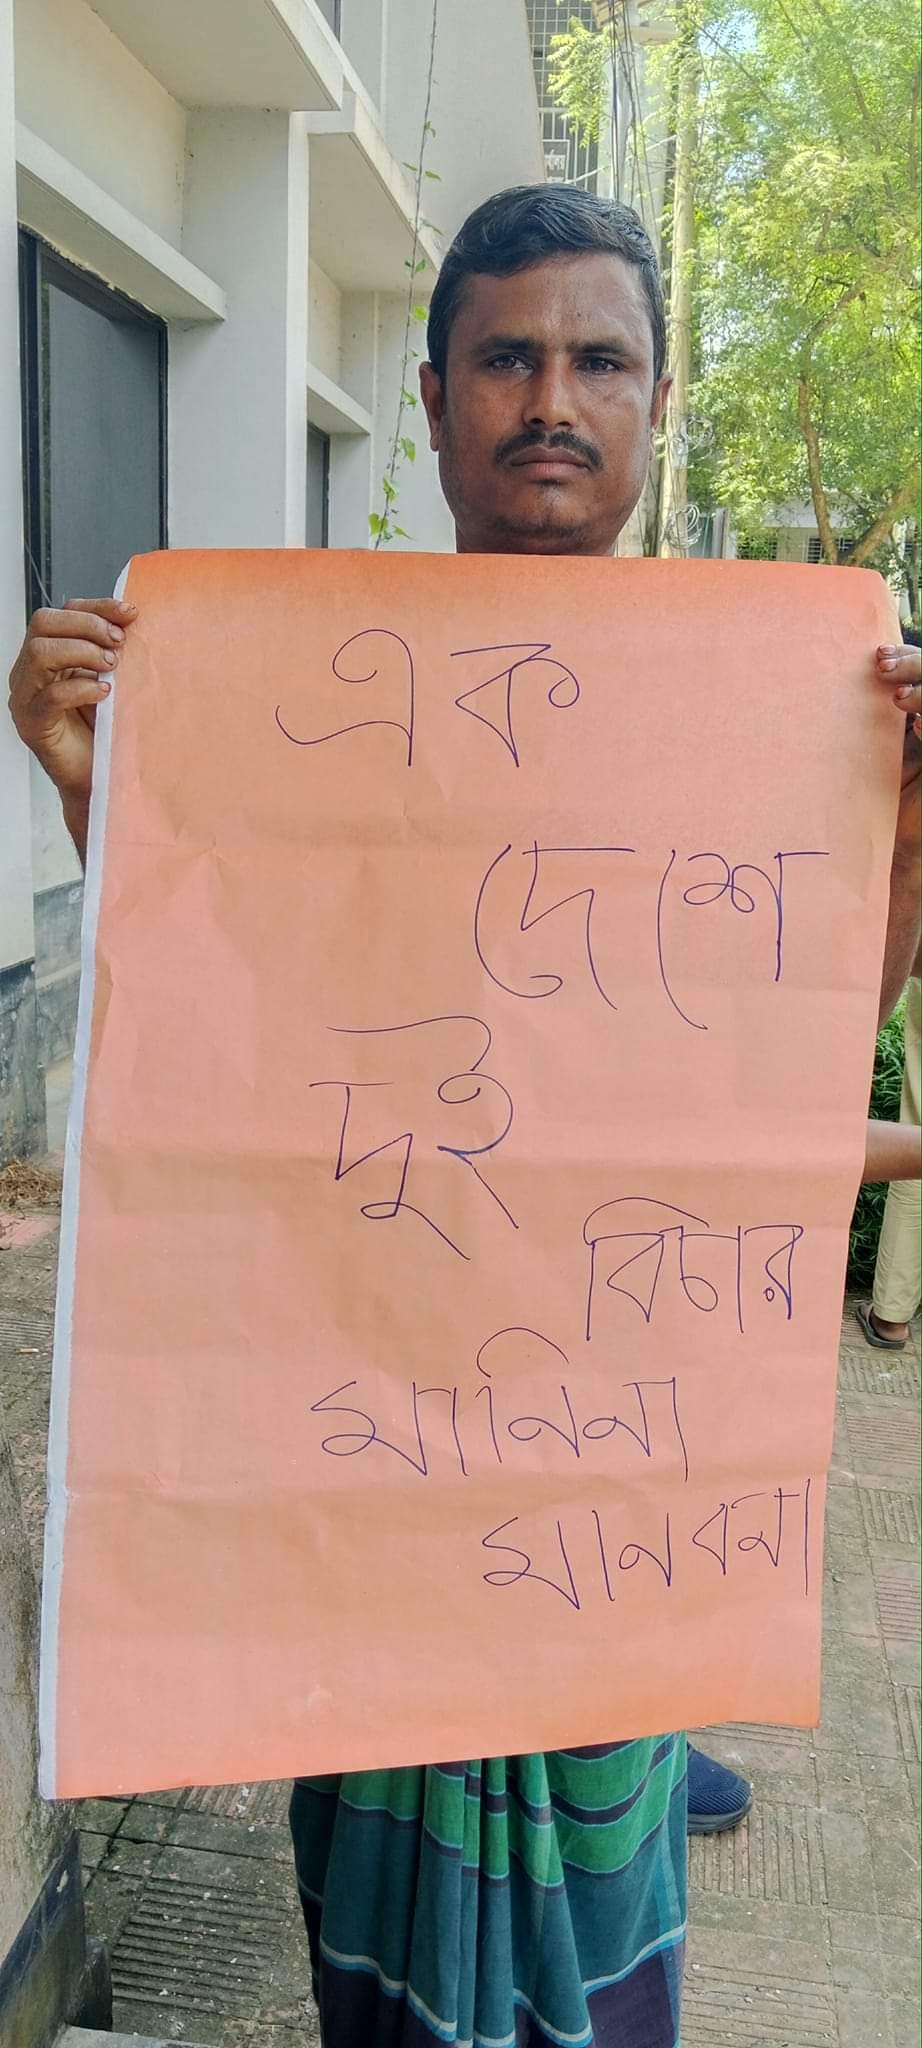 এক
দেশে
দুই
বিচার
মানিনা
মানবনা